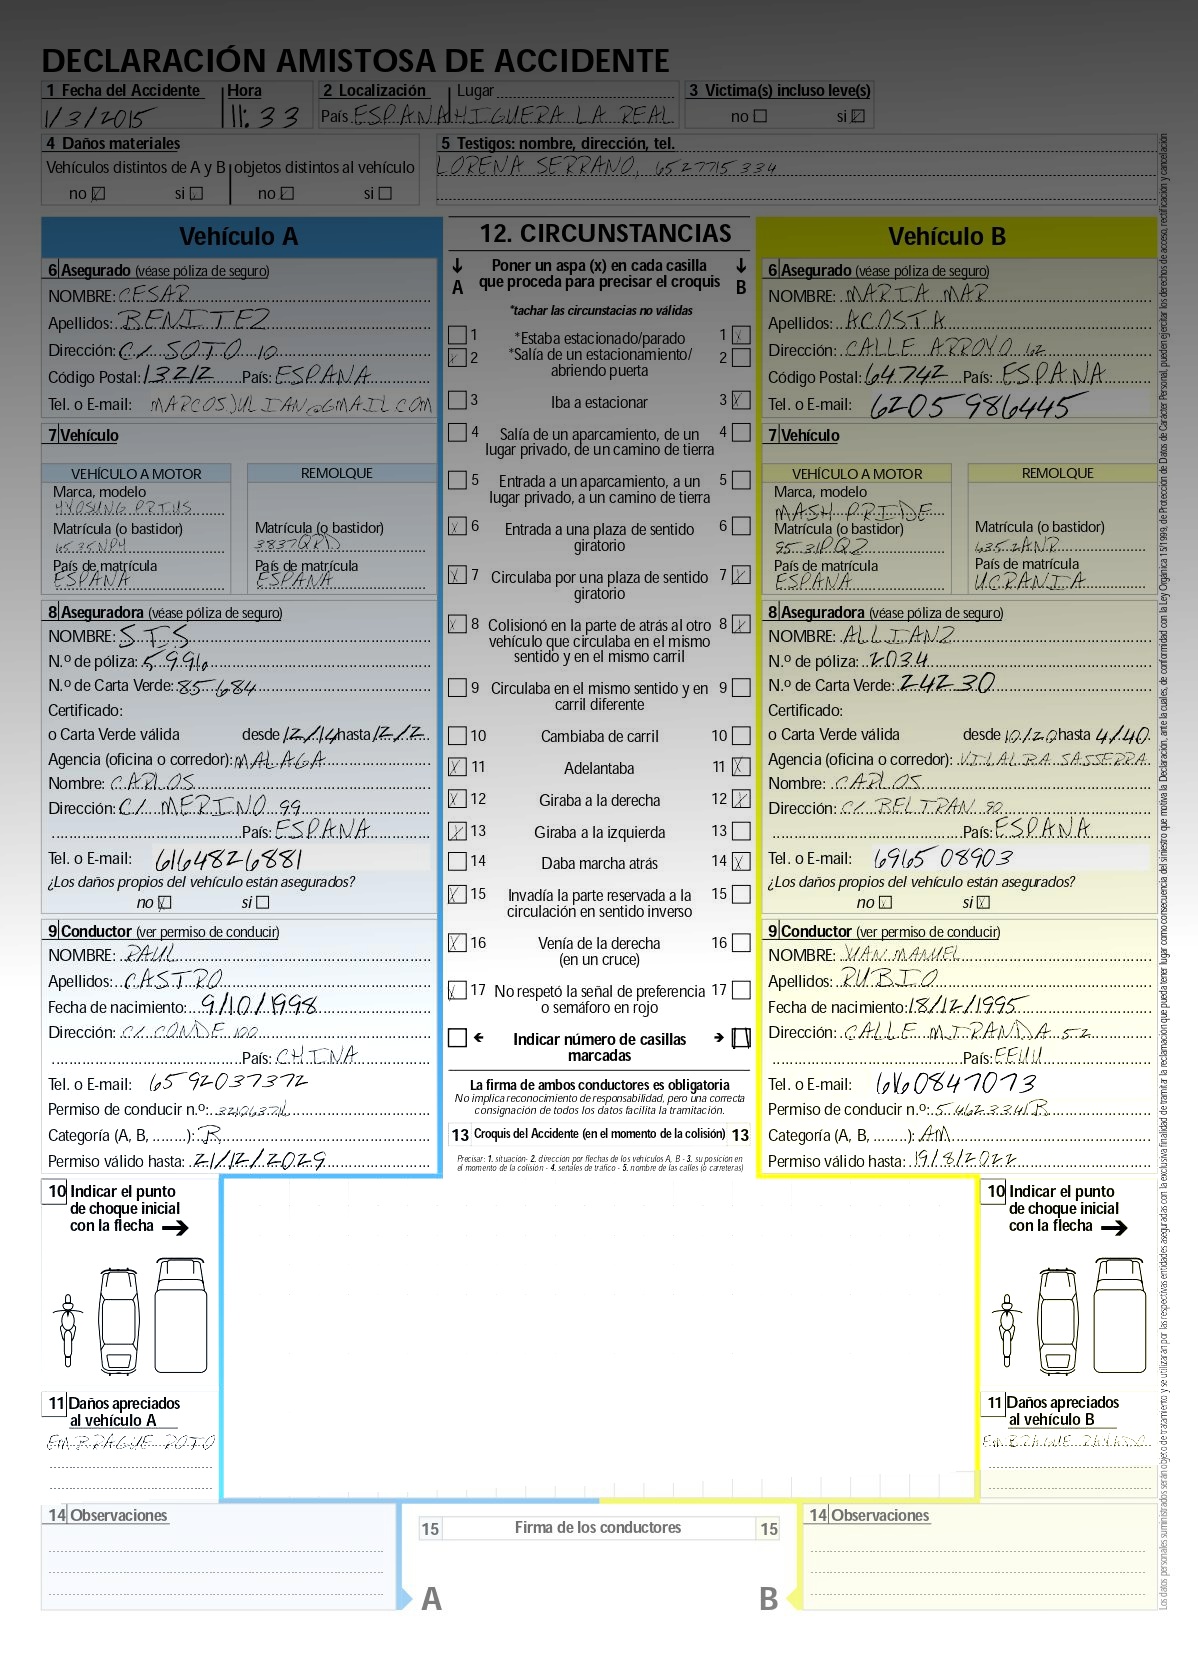 DECLARACIÓN AMISTOSA DE ACCIDENTE
1 Fecha del Accidente Hora 2 Localización Lugar 3 Victima(s) incluso leve(s)
1/3/2015 11:33 País ESPAÑA HIGUERA LA REAL no si
4 Daños materiales
Vehículos distintos de A y B objetos distintos al vehículo
no si no si
5 Testigos: nombre, dirección, tel.
LORENA SERRANO, 6527715334
Vehículo A
6 Asegurado (véase póliza de seguro)
NOMBRE: CESAR
Apellidos: BENITEZ
Dirección: C/ SOTO 10
Código Postal: 13212 País: ESPAÑA
Tel. o E-mail: MARCOSJULIAN@GMAIL.COM
7 Vehículo
VEHÍCULO A MOTOR REMOLQUE
Marca, modelo
HYOSUNG PRIUS
Matrícula (o bastidor) Matrícula (o bastidor)
6535NPY 3837QRD
País de matrícula País de matrícula
ESPAÑA ESPAÑA
8 Aseguradora (véase póliza de seguro)
NOMBRE: STS
N.º de póliza: 5996
N.º de Carta Verde: 85684
Certificado:
o Carta Verde válida desde 12/14 hasta 12/2
Agencia (oficina o corredor): MALAGA
Nombre: CARLOS
Dirección: C/ MERINO 99
País: ESPAÑA
Tel. o E-mail: 6164826881
¿Los daños propios del vehículo están asegurados?
no si
9 Conductor (ver permiso de conducir)
NOMBRE: RAUL
Apellidos: CASTRO
Fecha de nacimiento: 9/10/1998
Dirección: C/ CONDE 100
País: CHINA
Tel. o E-mail: 6592037372
Permiso de conducir n.º:
Categoría (A, B, ........): B
Permiso válido hasta: 21/12/2029
10 Indicar el punto
de choque inicial
con la flecha
11 Daños apreciados
al vehículo A
EMBRAGUE ROTO
14 Observaciones
12. CIRCUNSTANCIAS
A B
Poner un aspa (x) en cada casilla
que proceda para precisar el croquis
*tachar las circunstacias no válidas
1 *Estaba estacionado/parado 1
2 *Salía de un estacionamiento/ 2
abriendo puerta
3 Iba a estacionar 3
4 Salía de un aparcamiento, de un 4
lugar privado, de un camino de tierra
5 Entrada a un aparcamiento, a un 5
lugar privado, a un camino de tierra
6 Entrada a una plaza de sentido 6
giratorio
7 Circulaba por una plaza de sentido 7
giratorio
8 Colisionó en la parte de atrás al otro 8
vehículo que circulaba en el mismo
sentido y en el mismo carril
9 Circulaba en el mismo sentido y en 9
carril diferente
10 Cambiaba de carril 10
11 Adelantaba 11
12 Giraba a la derecha 12
13 Giraba a la izquierda 13
14 Daba marcha atrás 14
15 Invadía la parte reservada a la 15
circulación en sentido inverso
16 Venía de la derecha 16
(en un cruce)
17 No respetó la señal de preferencia 17
o semáforo en rojo
Indicar número de casillas
marcadas
La firma de ambos conductores es obligatoria
No implica reconocimiento de responsabilidad, pero una correcta
consignación de todos los datos facilita la tramitación.
13 Croquis del Accidente (en el momento de la colisión) 13
Precisar: 1. situación- 2. dirección por flechas de los vehículos A, B - 3. su posición en
el momento de la colisión - 4. señales de tráfico - 5. nombre de las calles (o carreteras)
15 Firma de los conductores 15
A B
Vehículo B
6 Asegurado (véase póliza de seguro)
NOMBRE: MARIA MAR
Apellidos: ACOSTA
Dirección: CALLE ARROYO 62
Código Postal: 64742 País: ESPAÑA
Tel. o E-mail: 6205986445
7 Vehículo
VEHÍCULO A MOTOR REMOLQUE
Marca, modelo
MASH PRIDE
Matrícula (o bastidor) Matrícula (o bastidor)
9531PQZ 6352ANR
País de matrícula País de matrícula
ESPAÑA UCRANIA
8 Aseguradora (véase póliza de seguro)
NOMBRE: ALLIANZ
N.º de póliza: 2034
N.º de Carta Verde: 24230
Certificado:
o Carta Verde válida desde 10/20 hasta 4/40
Agencia (oficina o corredor): VILALBA SASSERRA
Nombre: CARLOS
Dirección: C/ BELTRAN 92
País: ESPAÑA
Tel. o E-mail: 696508903
¿Los daños propios del vehículo están asegurados?
no si
9 Conductor (ver permiso de conducir)
NOMBRE: JUAN MANUEL
Apellidos: RUBIO
Fecha de nacimiento: 18/12/1995
Dirección: CALLE MIRANDA 52
País: EEUU
Tel. o E-mail: 6160847073
Permiso de conducir n.º: 5462334R
Categoría (A, B, ........): AM
Permiso válido hasta: 19/8/2022
10 Indicar el punto
de choque inicial
con la flecha
11 Daños apreciados
al vehículo B
EMBRAGUE RAYADO
14 Observaciones
Los datos personales suministrados serán objeto de tratamiento y se utilizaran por las respectivas entidades aseguradas con la exclusiva finalidad de tramitar la reclamación que pueda tener lugar como consecuencia del siniestro que motiva la Declaración, ante la cuales, de conformidad con la Ley Orgánica 15/1999, de Protección de Datos de Carácter Personal, pueden ejercitar los derechos de acceso, rectificación y cancelación